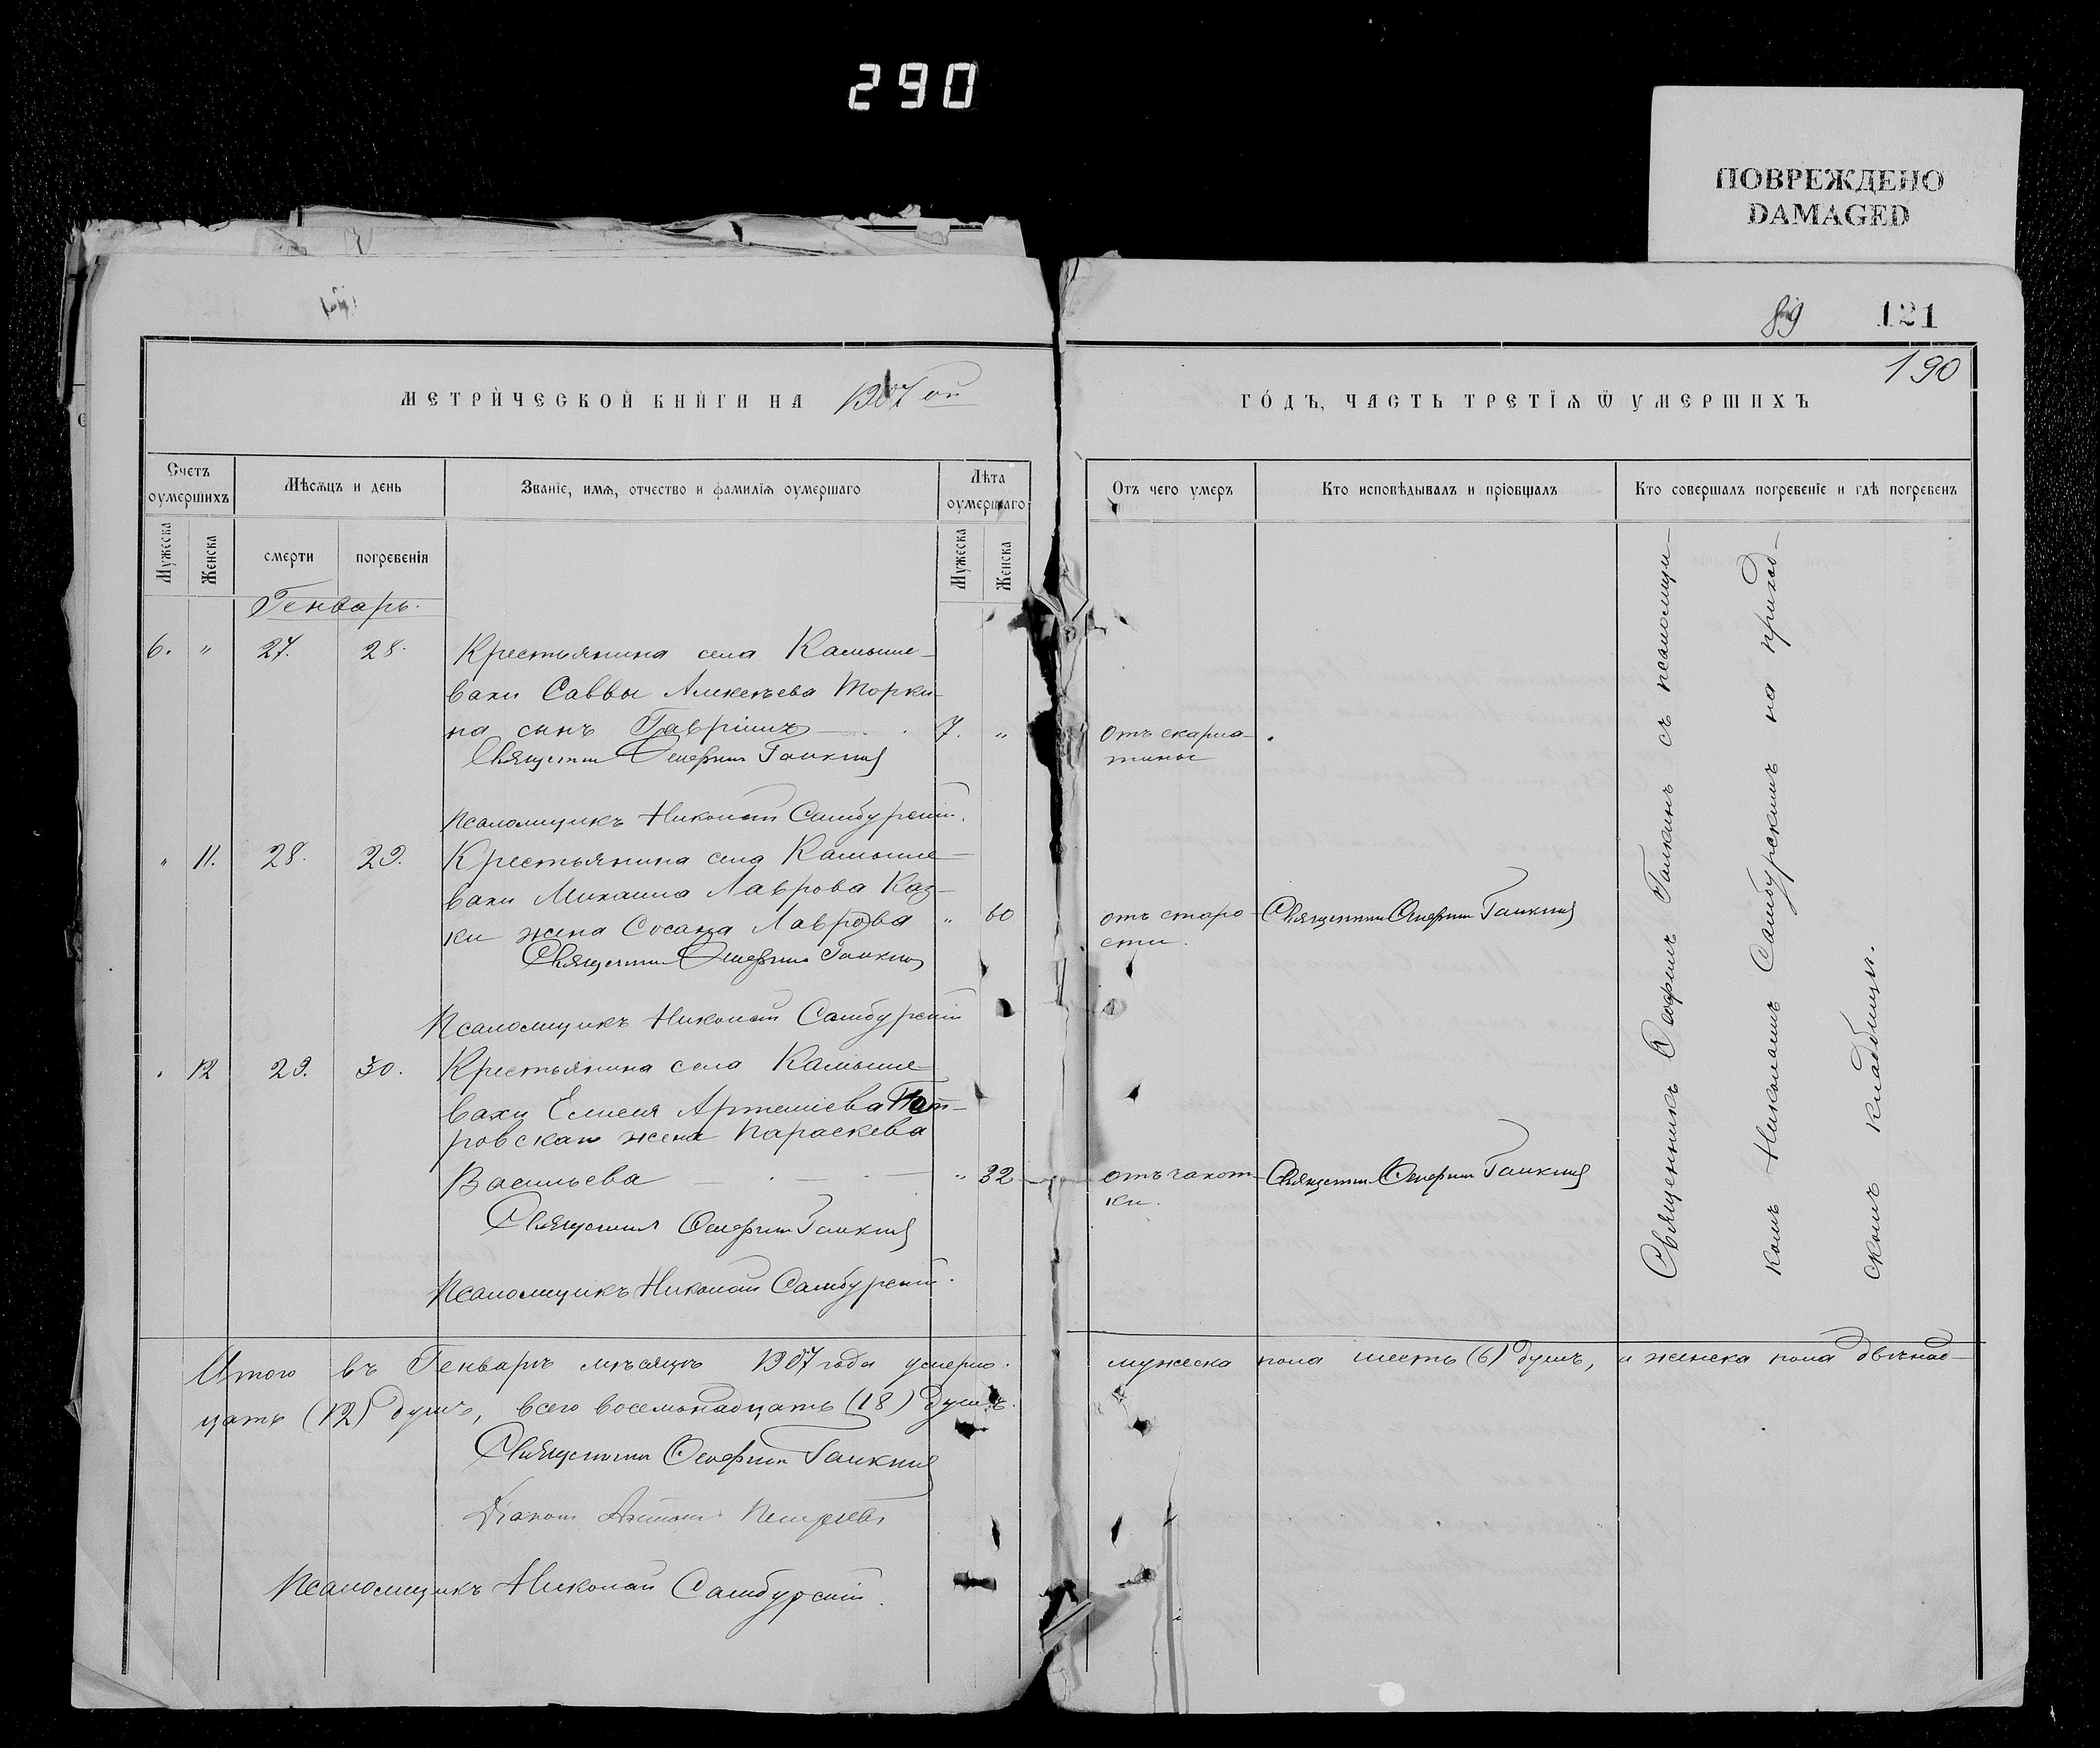 290
ПОВРЕЖДЕНО
DAMAGED
89 121
190
МЕТРИЧЕСКОЙ КНИГИ НА 1907 ой
ГОДЪ, ЧАСТЬ ТРЕТІЯ Ѿ УМЕРШИХЪ
Счетъ оумершихъ
Мѣсяцъ и день
Званіе, имя, отчество и фамилія оумершаго
Лѣта оумершаго
Отъ чего умеръ
Кто исповѣдывалъ и пріобщалъ
Кто совершалъ погребеніе и гдѣ погребенъ
Мужеска
Женска
смерти
погребенія
Мужеска
Женска
Генварь.
6. " 27. 28. Крестьянина села Камыше-
вахи Саввы Алексѣева Торки-
на сынъ Гавріилъ 7. " отъ скарла-
тины
Священникъ Галкинъ
Псаломщикъ Николай Самбурскій.
" 11. 28. 29. Крестьянина села Камыше-
вахи Михаила Лаврова Каз-
ки жена Сосана Лаврова " 60 отъ старо- Священникъ Галкинъ
сти.
Священникъ Галкинъ
Псаломщикъ Николай Самбурскій
" 12 29. 30. Крестьянина села Камыше
вахи Елисея Артеміева
ровскаго жена Параскева
Васильева " 32 отъ чахот- Священникъ Галкинъ
ки.
Священникъ Галкинъ
Псаломщикъ Николай Самбурскій.
Священникъ Галкинъ съ псаломщи-
комъ Николаемъ Самбурскимъ на приход-
скомъ кладбищѣ.
Итого въ Генварѣ мѣсяцѣ 1907 года умерло мужеска пола шесть (6) душъ, и женска пола двѣнад-
цать (12) душъ, всего восемьнадцать (18) душъ.
Священникъ Галкинъ
Діаконъ
Псаломщикъ Николай Самбурскій.